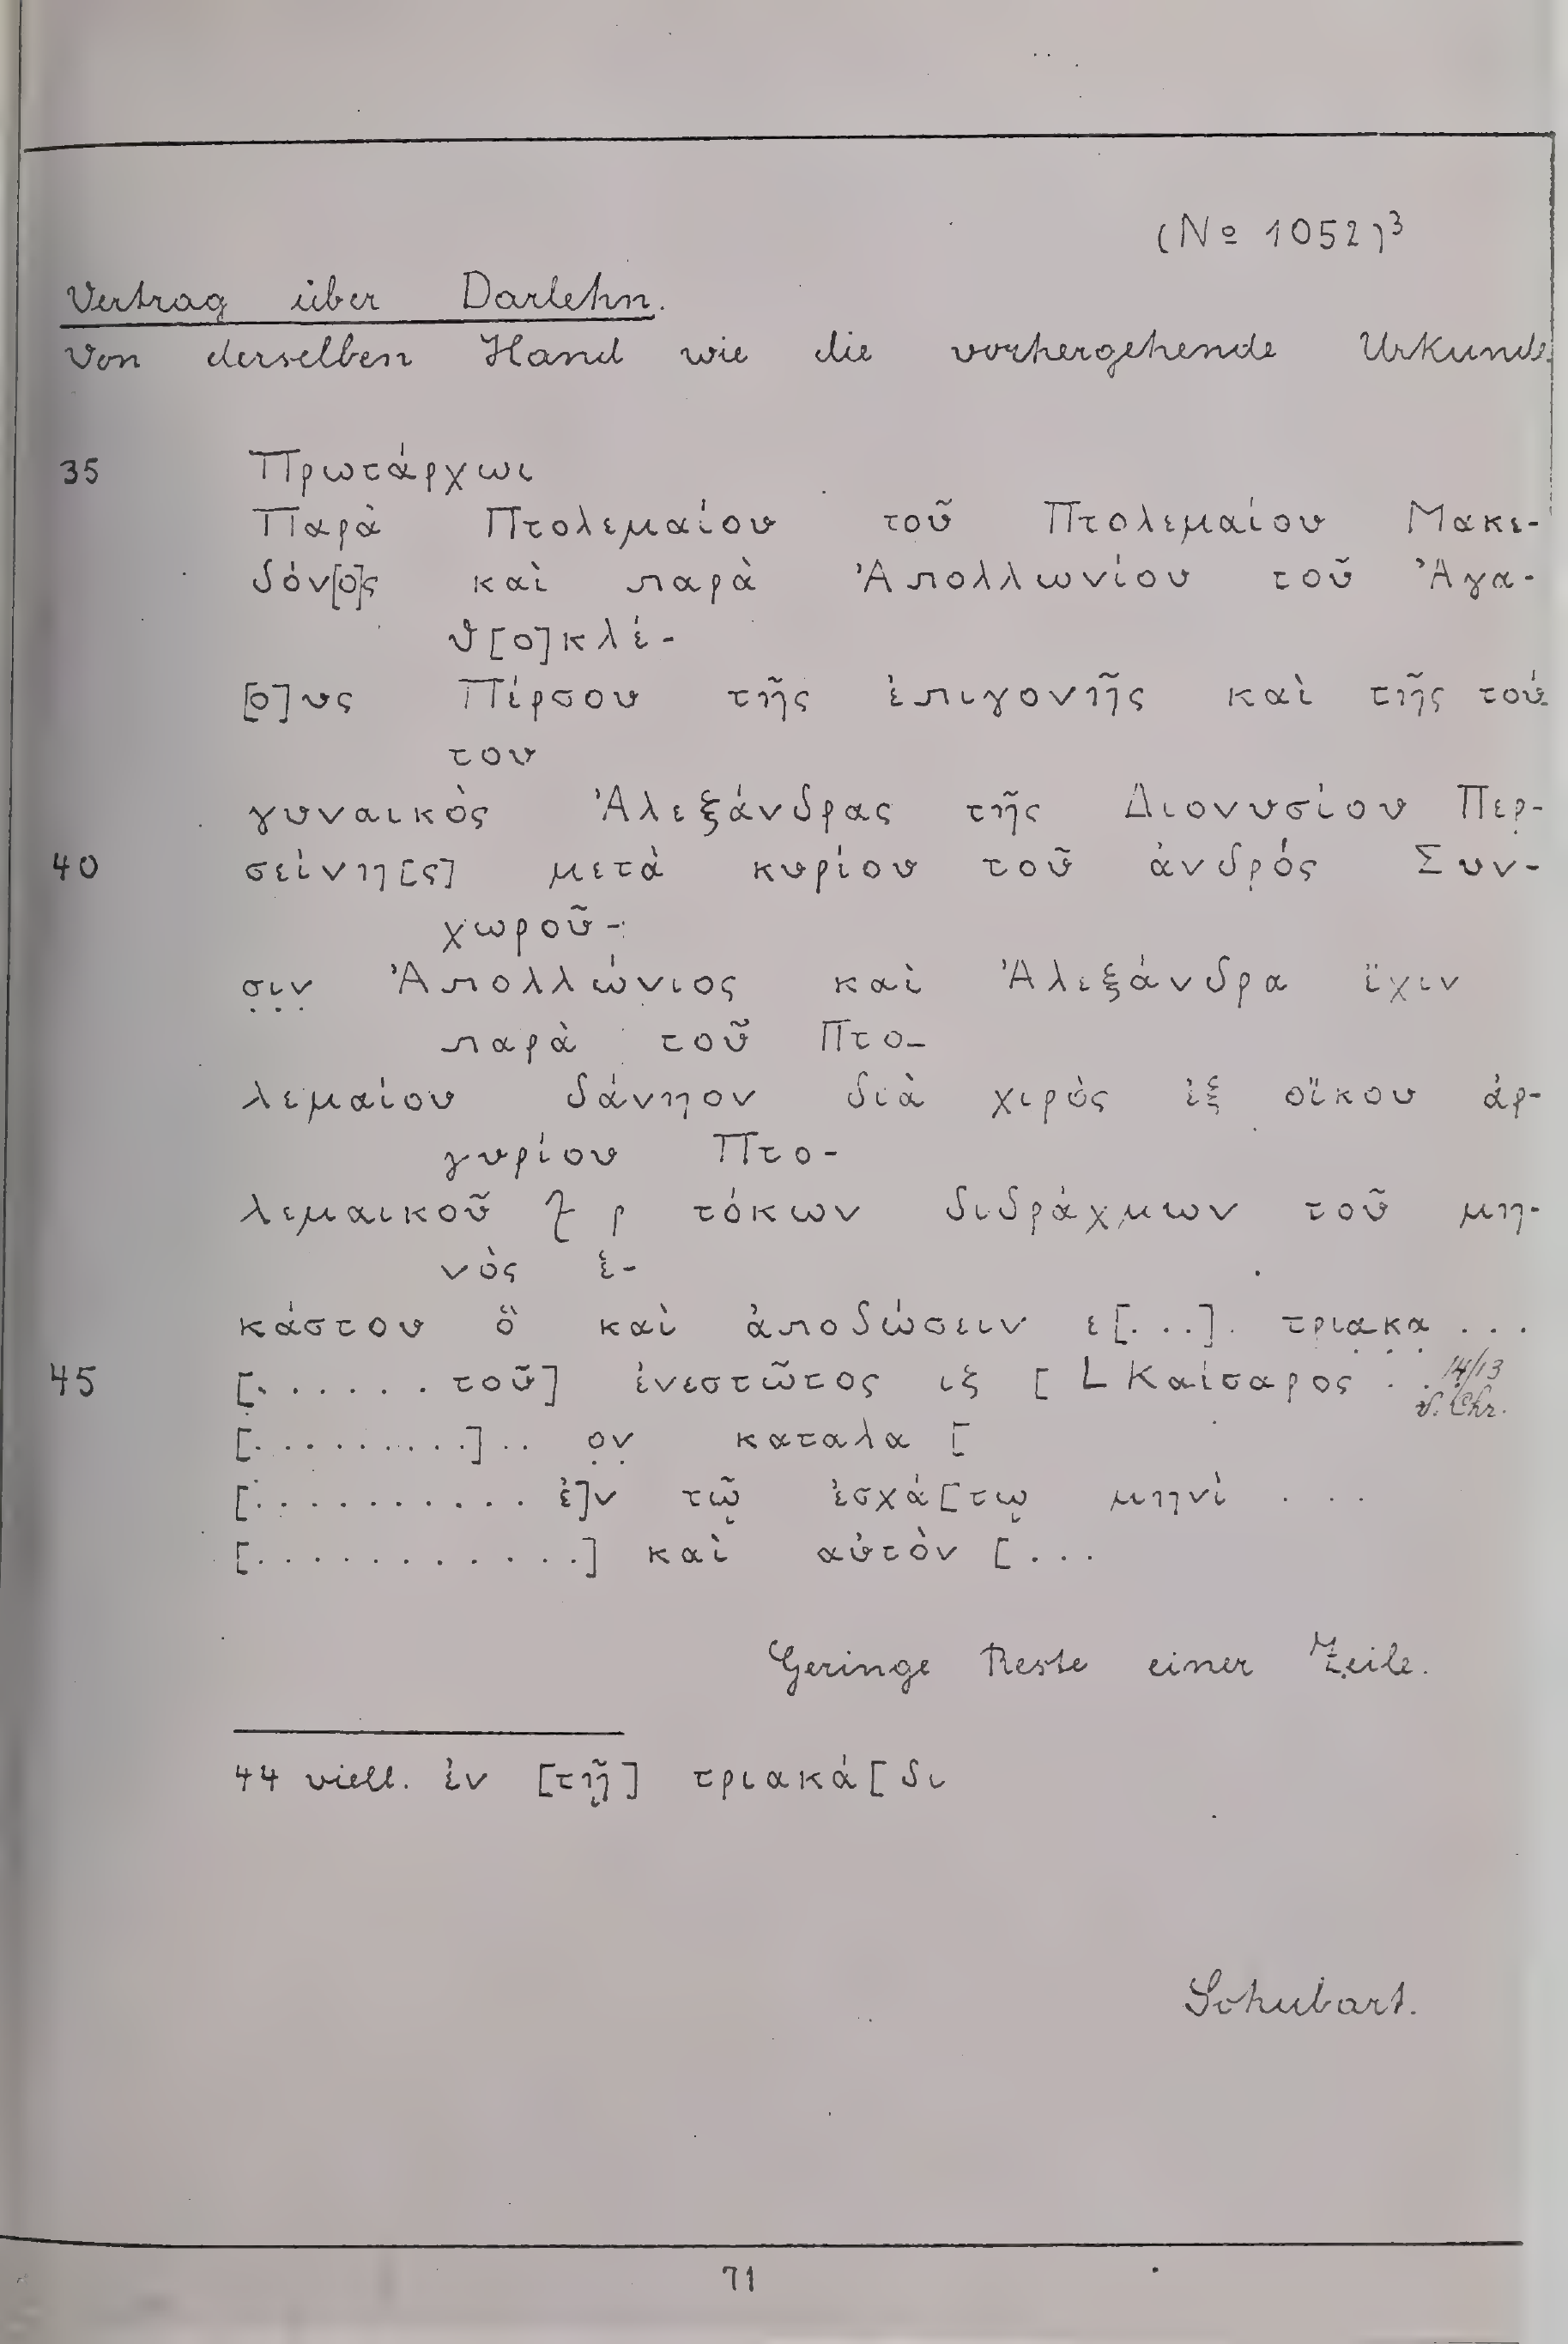 (No 1052)³
Vertrag über Darlehn.
Von derselben Hand wie die vorhergehende Urkunde.
35 Πρωτάρχωι
Παρὰ Πτολεμαίου τοῦ Πτολεμαίου Μακε-
δόν[ο]ς καὶ παρὰ Ἀπολλωνίου τοῦ Ἀγα-
θ[ο]κλέ-
[ο]υς Πέρσου τῆς ἐπιγονῆς καὶ τῆς τού-
του
γυναικὸς Ἀλεξάνδρας τῆς Διονυσίου Περ-
40 σείνη[ς] μετὰ κυρίου τοῦ ἀνδρός Συν-
χωροῦ-
σ̣ι̣ν̣ Ἀπολλώνιος καὶ Ἀλεξάνδρα ἔχιν
παρὰ τοῦ Πτο-
λεμαίου δάνηον διὰ χιρὸς ἐξ οἴκου ἀρ-
γυρίου Πτο-
λεμαικοῦ ρ τόκων διδράχμων τοῦ μη-
νὸς ἑ-
κάστου ὃ καὶ ἀποδώσειν ε[...]. τρια̣κ̣α̣ ...
45 [....... τοῦ] ἐνεστῶτος ιξ [ L Καίσαρος ... 14/13
v. Chr.
[.........] .. ο̣ν̣ καταλα [
[.......... ἐ]ν τῷ ἐσχά[τῳ μηνὶ ...
[............] καὶ αὐτὸν [...
Geringe Reste einer Zeile.
44 viell. ἐν [τῇ] τριακά[δι
Schubart.
71